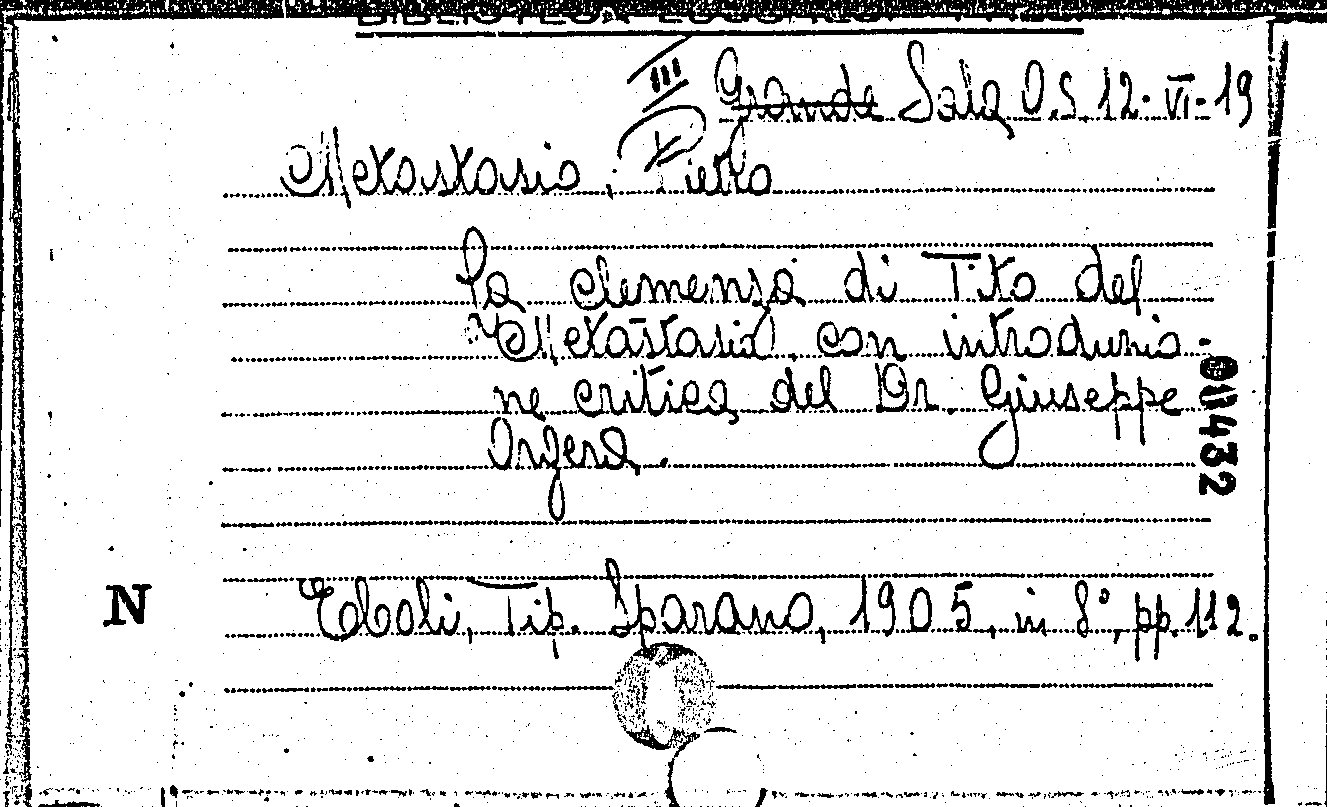 III Grande Sala O.S. 12-VI-19
Metastasio, Pietro
La clemenza di Tito del
Metastasio, con introduzio-
ne critica del Dr. Giuseppe
Orgera.
011432
N
Eboli, Tip. Sparano, 1905, in 8°, pp. 112.